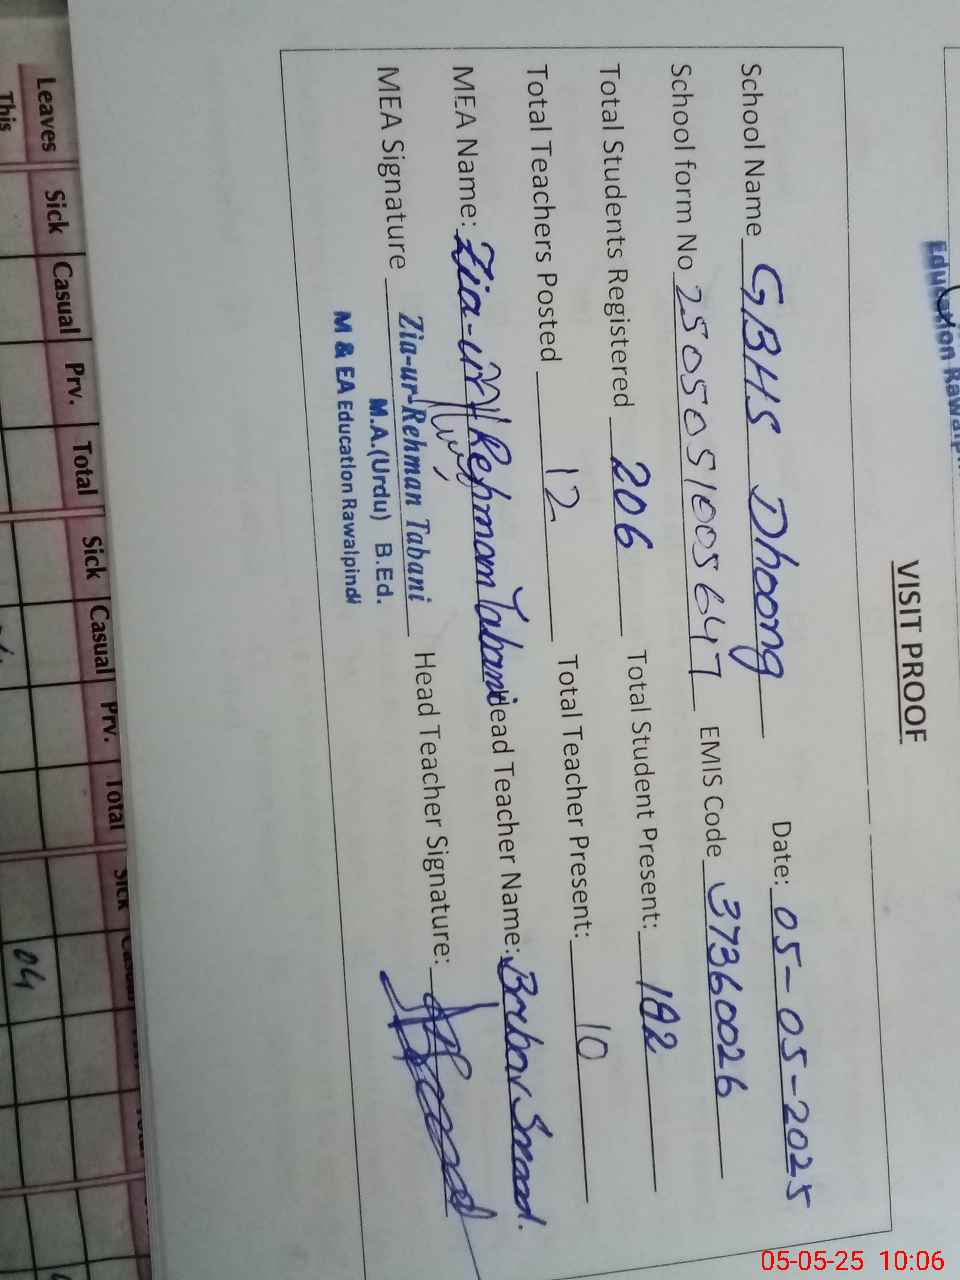 Education Rawalp
VISIT PROOF
School Name GBHS Dhoong Date: 05-05-2025
School form No 2505051005647 EMIS Code 37360026
Total Students Registered 206 Total Student Present: 182
Total Teachers Posted 12 Total Teacher Present: 10
MEA Name: Zia-ur Rehman Tabani Head Teacher Name: Babar
MEA Signature Zia-ur-Rehman Tabani Head Teacher Signature:
M.A.(Urdu) B.Ed.
M & EA Education Rawalpindi
Leaves Sick Casual Prv. Total Sick Casual Prv. Total Sick
This
04
05-05-25 10:06